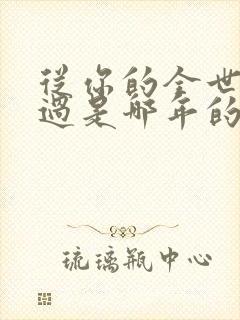 從你的全世
過是那年的
琉璃瓶中心